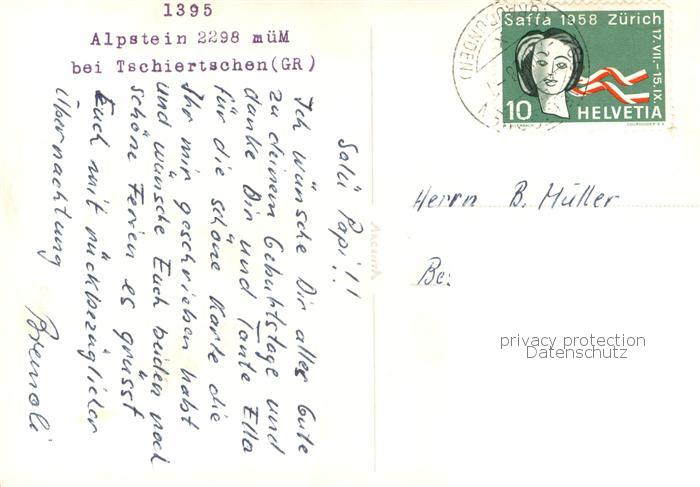 1395
Alpstein 2298 müM
bei Tschiertschen(GR)
Salü Papi!!
Ich wünsche Dir alles Gute
zu deinem Geburtstage und
danke Dir und Tante Ella
für die schöne Karte die
Ihr mir geschrieben habt
und wünsche Euch beiden noch
schöne Ferien es grüsst
Euch mit rückbezüglicher
Übernachtung
Saffa 1958 Zürich
17.VII.–15.IX.
10 HELVETIA
COURVOISIER S.A.
(GRAUBÜNDEN)
Herrn B. Müller
Be:
privacy protection
Datenschutz